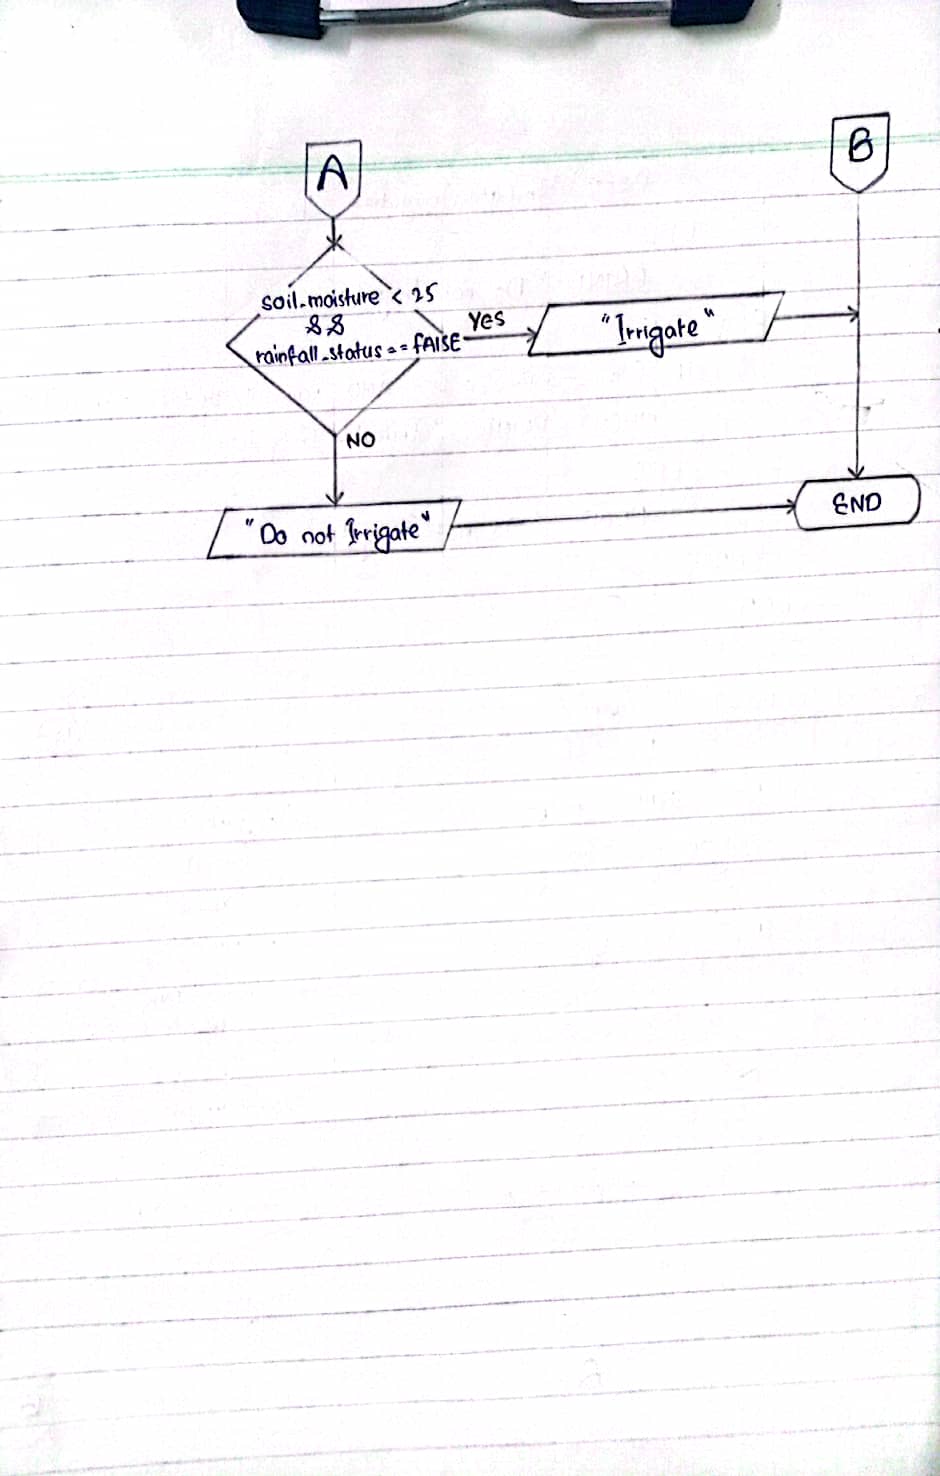 A
B
soil-moisture < 25
&&
rainfall-status == fAlSE
Yes
"Irrigate"
NO
"Do not Irrigate"
END